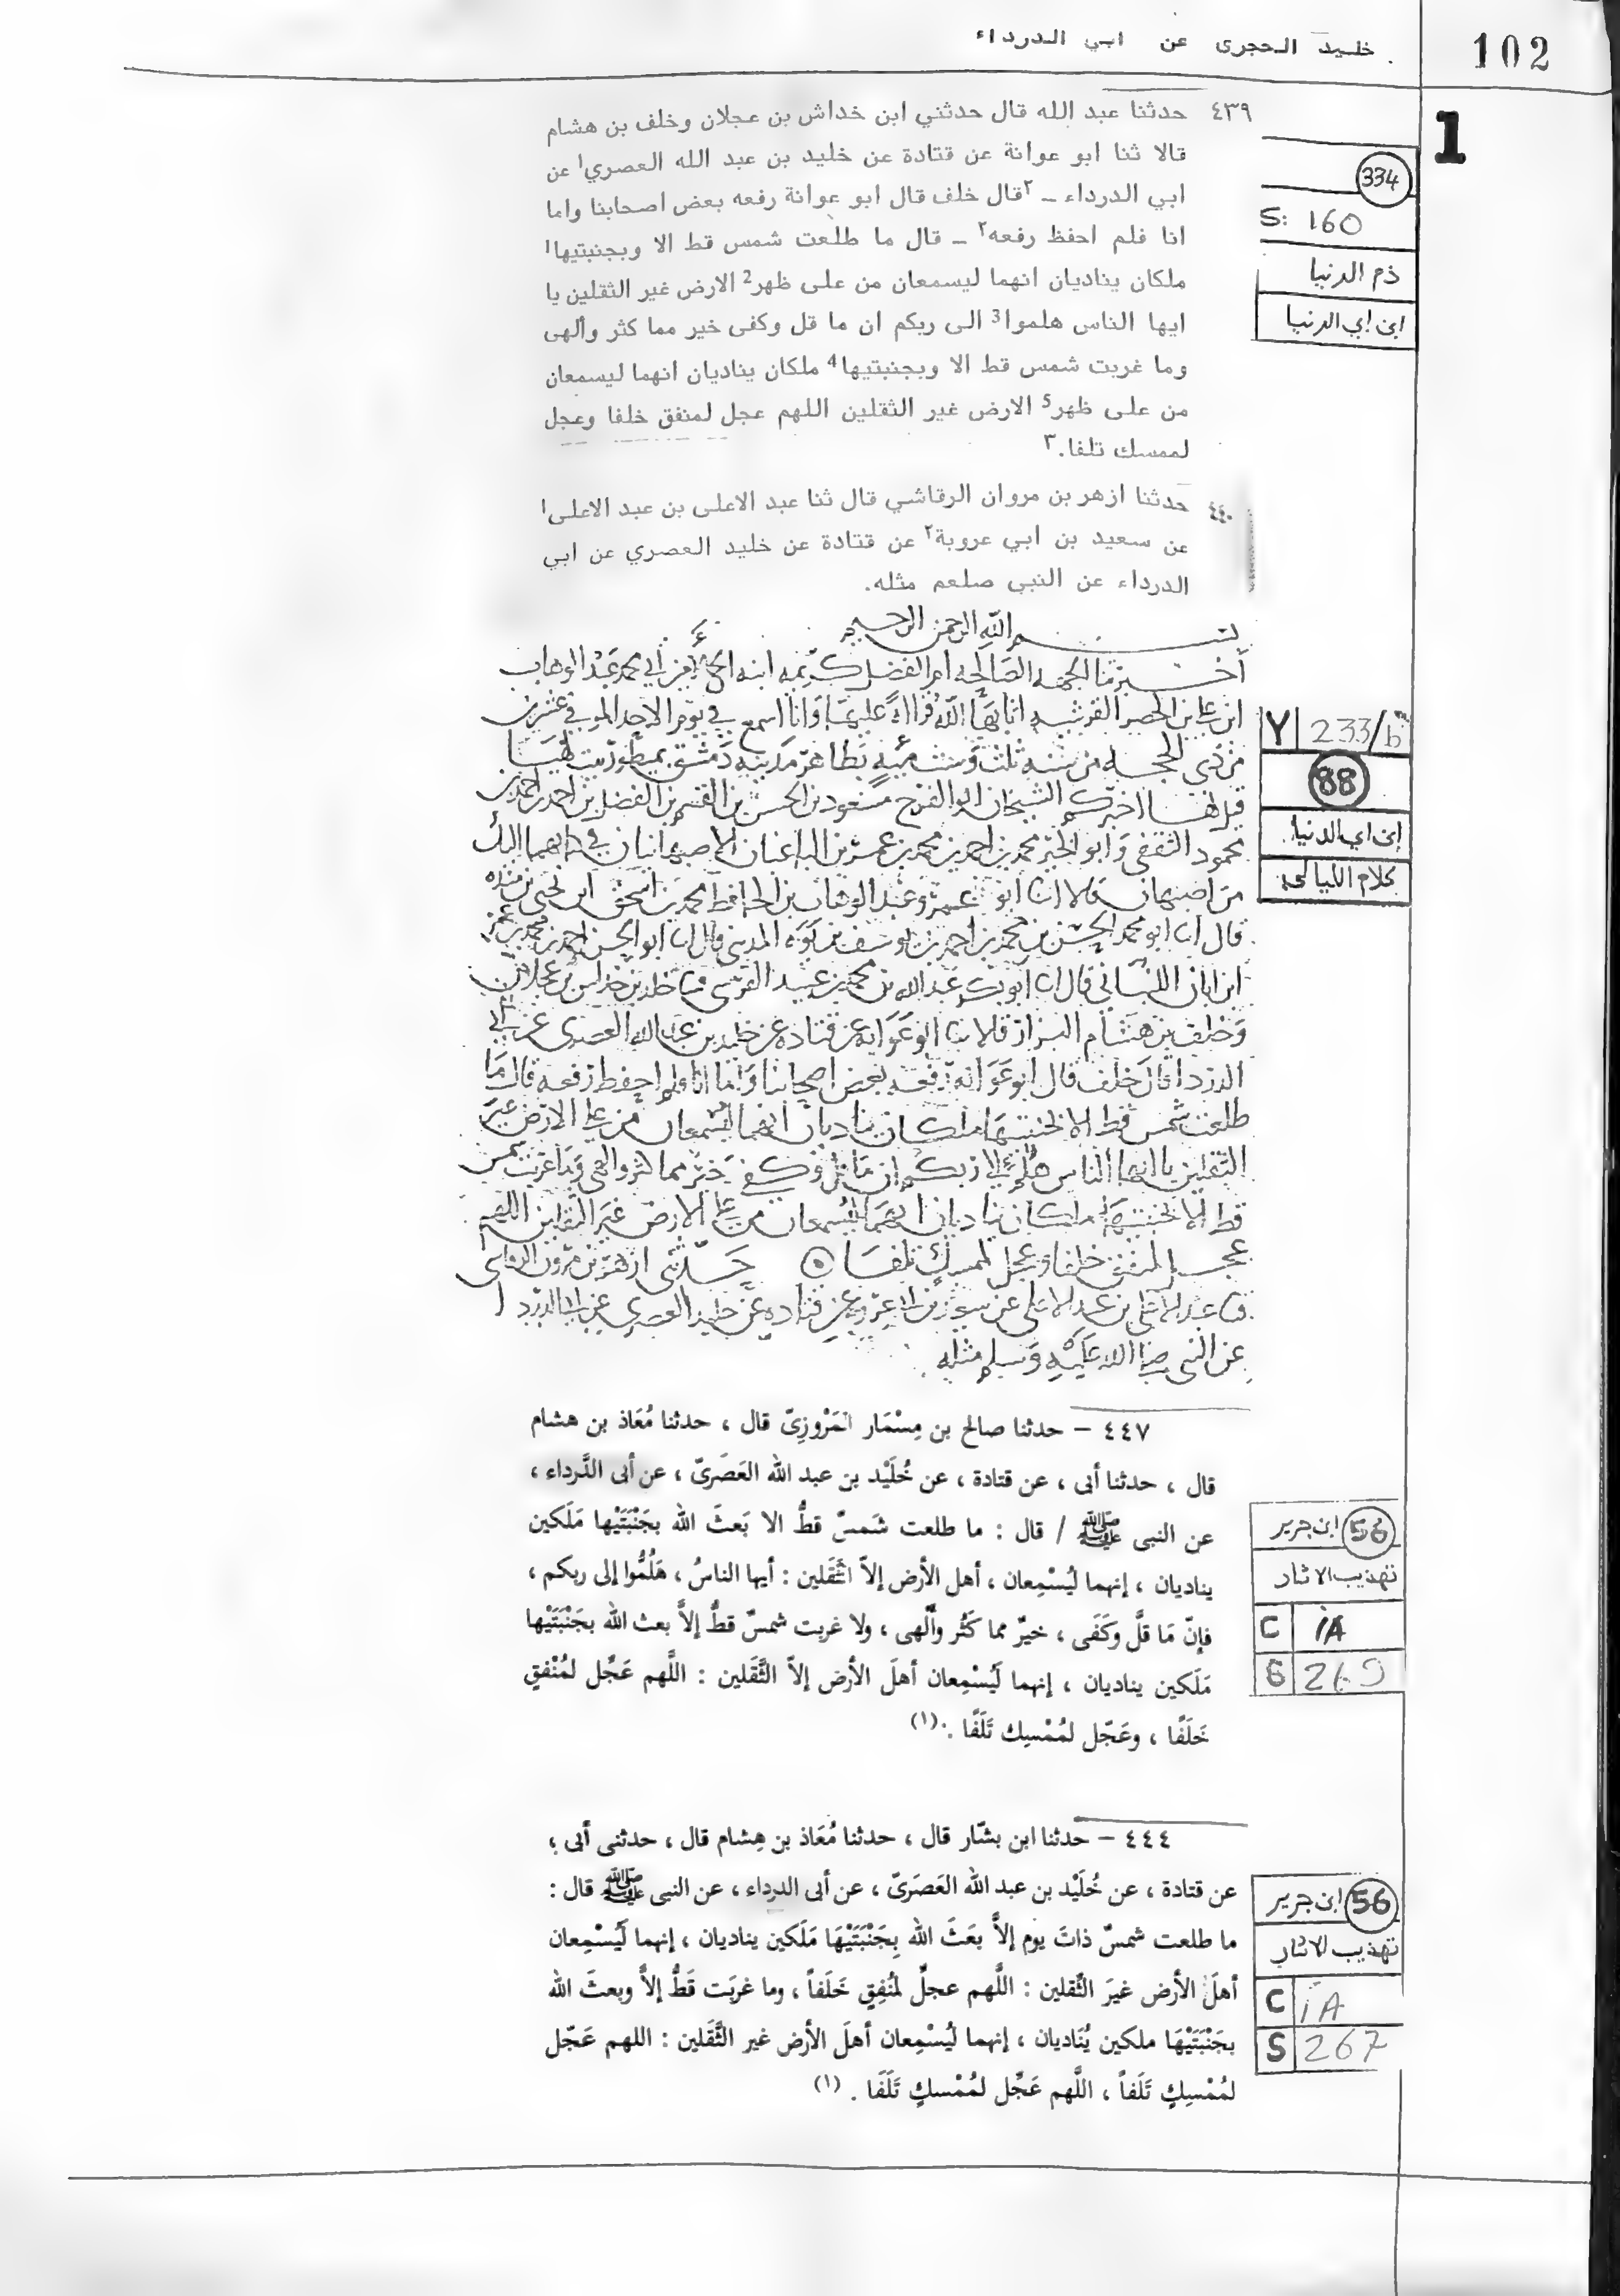 102
خليد الحجرى عن ابي الدرداء
1
٤٣٩ حدثنا عبد الله قال حدثني ابن خداش بن عجلان وخلف بن هشام
قالا ثنا ابو عوانة عن قتادة عن خليد بن عبد الله العصري١ عن
ابي الدرداء ـ ٢قال خلف قال ابو عوانة رفعه بعض اصحابنا واما
انا فلم احفظ رفعه٢ ـ قال ما طلعت شمس قط الا وبجنبتيها1
ملكان يناديان انهما ليسمعان من على ظهر2 الارض غير الثقلين يا
ايها الناس هلموا3 الى ربكم ان ما قل وكفى خير مما كثر وألهى
وما غربت شمس قط الا وبجنبتيها4 ملكان يناديان انهما ليسمعان
من على ظهر5 الارض غير الثقلين اللهم عجل لمنفق خلفا وعجل
لممسك تلفا.٣
334
S: 160
ذم الدنيا
ابن ابي الدنيا
٤٤٠ حدثنا ازهر بن مروان الرقاشي قال ثنا عبد الاعلى بن عبد الاعلى١
عن سعيد بن ابي عروبة٢ عن قتادة عن خليد العصري عن ابي
الدرداء عن النبي صلعم مثله.
بسم الله الرحمن الرحيم
أخبرتنا الجهة الصالحة ام الفضل كريمة ابنة ابي محمد عبد الوهاب
ابن علي بن الخضر القرشية اثابها الله قراءة عليها وانا اسمع في يوم الاحد
من ذي الحجة من سنة ثلث وست مئة بظاهر مدينة دمشق
قيل لها اخبركم الشيخان ابو الفرج مسعود بن الحسن بن القسم بن الفضل بن احمد بن احمد بن
محمود الثقفي وابو الخير محمد بن احمد بن محمد بن عمر بن الباغبان الاصبهانيان في كتابيهما اليك
من اصبهان قالا انا ابو عمرو عبد الوهاب بن الحافظ محمد بن اسحق ابن يحيى بن منده
قال انا ابو محمد الحسن بن محمد بن احمد بن يوسف بن يوه المديني قال انا ابو الحسن احمد بن محمد بن عمر
ابن ابان اللنباني قال انا ابو بكر عبد الله بن محمد بن عبيد القرشي ثنا خالد بن خداش بن عجلان
وخلف بن هشام البزار قالا ثنا ابو عوانة عن قتاده عن خليد بن عبد الله العصري عن ابي
الدردا قال خلف قال ابو عوانه رفعه بعض اصحابنا واما انا فلم احفظ رفعه قال ما
طلعت شمس قط الا بجنبتيها ملكان يناديان انهما ليسمعان من على الارض غير
الثقلين يا ايها الناس هلموا الى ربكم ان ما قل وكفى خير مما كثر والهى وما غربت شمس
قط الا بجنبتيها ملكان يناديان انهما ليسمعان من على الارض غير الثقلين اللهم
عجل لمنفق خلفا وعجل لممسك تلفا ۞ حدثني ازهر بن مروان الرقاشي
ثنا عبد الاعلى بن عبد الاعلى عن سعيد بن ابي عروبة عن قتاده عن خليد العصري عن ابي الدردا
عن النبي صلى الله عليه وسلم مثله
Y 233/b
88
ابن ابي الدنيا
كلام الليالي
٤٤٧ – حدثنا صالح بن مِسْمَار المَرْوزِىّ قال ، حدثنا مُعَاذ بن هشام
قال ، حدثنا أبى ، عن قتادة ، عن خُلَيْد بن عبد الله العَصَرىّ ، عن أبى الدَّرداء ،
عن النبى ﷺ / قال : ما طلعت شَمسٌ قطُّ الا بَعثَ الله بجَنْبَتَيْها مَلَكين
يناديان ، إنهما ليُسْمِعان ، أهل الأرض إلاّ الثَّقَلين : أيها الناسُ ، هَلُمُّوا إلى ربكم ،
فإنّ مَا قلَّ وكَفَى ، خيرٌ مما كَثُر وأَلْهى ، ولا غربت شمسٌ قطُّ إلاَّ بعث الله بجَنْبَتَيْها
مَلَكين يناديان ، إنهما لَيُسْمِعان أهلَ الأرض إلاّ الثَّقَلين : اللَّهم عَجِّل لمُنْفقٍ
خَلَفًا ، وعَجّل لمُمْسِك تَلَفًا .(١)
56 ابن جرير
تهذيب الاثار
C iA
S 269
٤٤٤ – حدثنا ابن بشّار قال ، حدثنا مُعَاذ بن هِشام قال ، حدثنى أبى ،
عن قتادة ، عن خُلَيْد بن عبد الله العَصَرىّ ، عن أبى الدرداء ، عن النبى ﷺ قال :
ما طلعت شمسٌ ذاتَ يوم إلاَّ بعَثَ الله بِجَنْبَتَيْهَا مَلَكين يناديان ، إنهما لَيُسْمِعان
أهلَ الأرض غيرَ الثَّقلين : اللَّهم عجلِّ لمُنْفِقٍ خَلَفاً ، وما غربَت قَطُّ إلاَّ وبعثَ الله
بجَنْبَتَيْهَا ملكين يُنَاديان ، إنهما لَيُسْمِعان أهلَ الأرض غير الثَّقَلين : اللهم عَجّل
لمُمْسِكٍ تَلَفاً ، اللَّهم عَجِّل لمُمْسكٍ تَلَفًا . (١)
56 ابن جرير
تهذيب الاثار
C iA
S 267